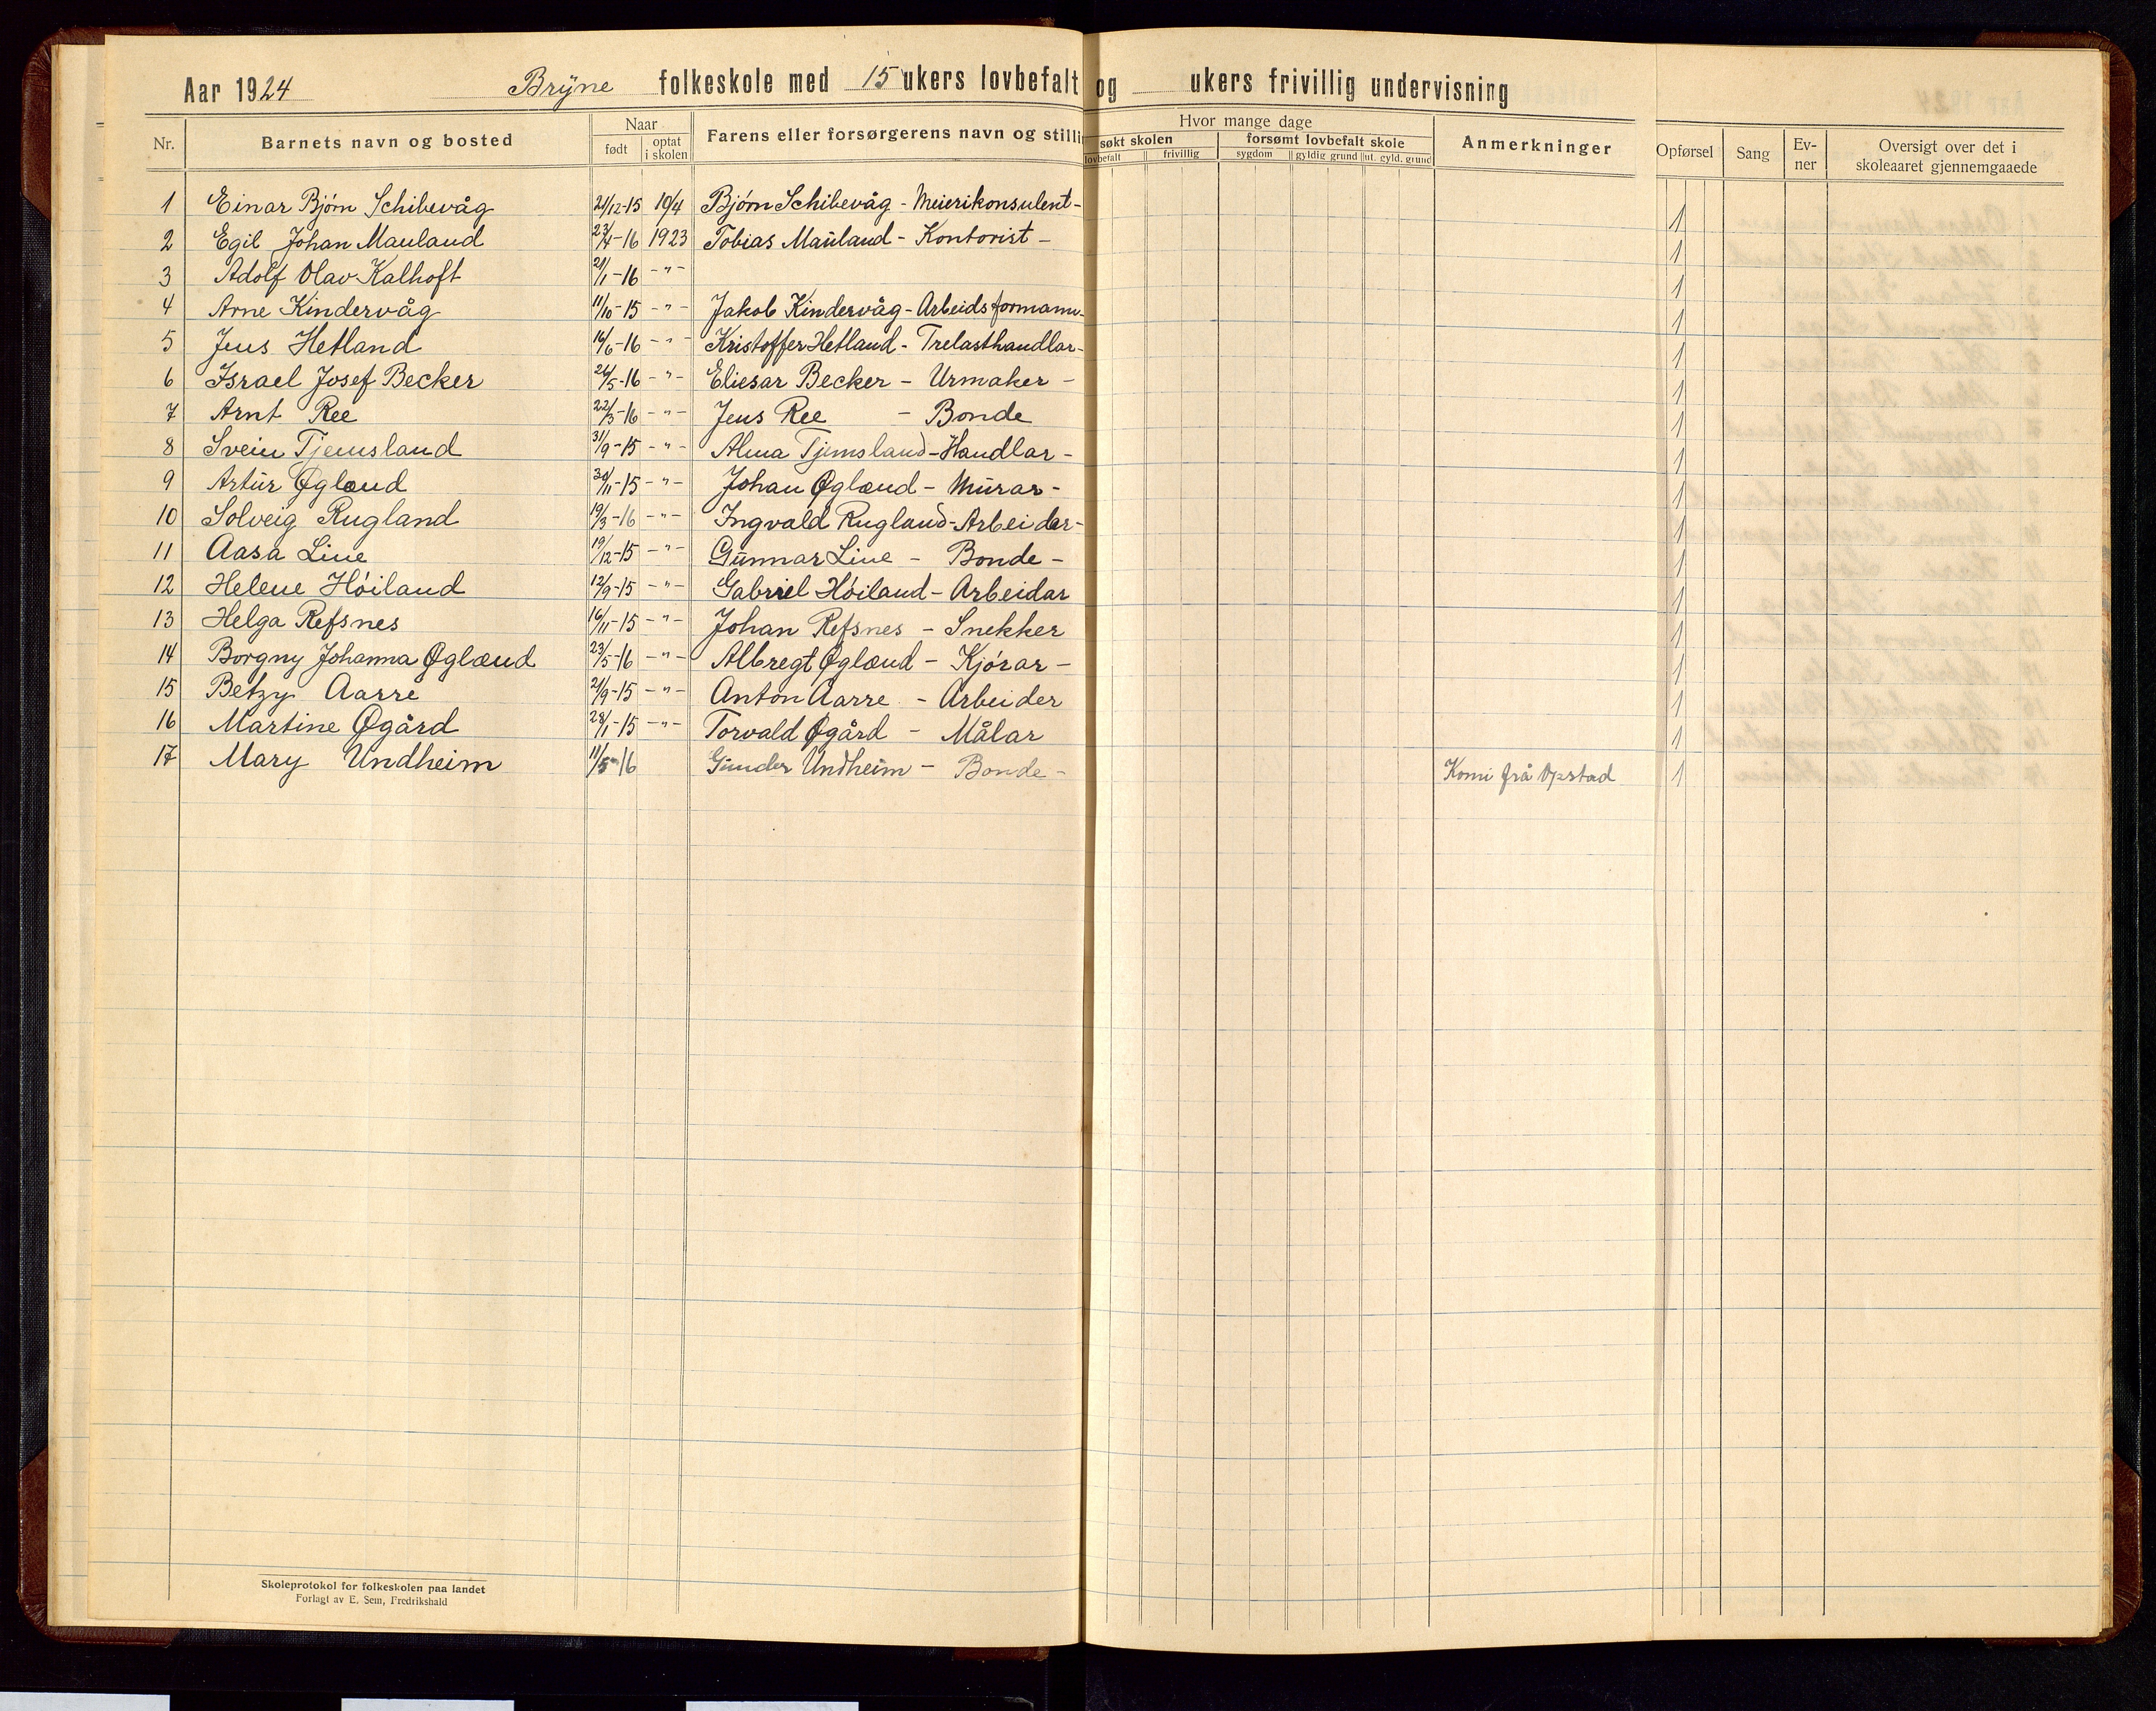 Aar 1924 Brÿne folkeskole med 15 ukers lovbefalt og ukers frivillig undervisning
Nr. Barnets navn og bosted Naar født optat i skolen Farens eller forsørgerens navn og stilli søkt skolen lovbefalt frivillig Hvor mange dage forsømt lovbefalt skole sygdom gyldig grund ut. gyld. grund Anmerkninger Opførsel Sang Ev-ner Oversigt over det i skoleaaret gjennemgaaede
1 Einar Bjórn Schibevåg 21/12-15 10/4 Bjórn Schibevåg - Meierikonsulent - 1
2 Egil Johan Mauland 23/4-16 1923 Tobias Maŭland - Kontorist - 1
3 Adolf Olav Kalhoft 21/1-16 -"- 1
4 Arne Kindervåg 11/10-15 -"- Jakob Kindervåg - Arbeidsformann- 1
5 Jens Hetland 16/6-16 -"- Kristoffer Hetland - Trelasthandlar- 1
6 Israel Josef Becker 24/5-16 -"- Eliesar Becker - Urmaker - 1
7 Arnt Ree 22/3-16 -"- Jens Ree - Bonde 1
8 Svein Tjemsland 31/9-15 -"- Alma Tjemsland - Handlar - 1
9 Artŭr Øglænd 30/11-15 -"- Johan Øglænd - Mŭrar - 1
10 Solveig Rugland 19/3-16 -"- Ingvald Rugland - Arbeidar- 1
11 Aasa Line 19/12-15 -"- Gŭnnar Line - Bonde - 1
12 Helene Hóiland 12/9-15 -"- Gabriel Hóiland - Arbeidar 1
13 Helga Refsnes 16/11-15 -"- Johan Refsnes - Snekker 1
14 Borgny Johanna Øglænd 23/5-16 -"- Albregt Øglænd - Kjórar - 1
15 Betzy Aarre 21/9-15 -"- Anton Aarre - Arbeider 1
16 Martine Øgård 28/1-15 -"- Torvald Øgård - Målar 1
17 Mary Undheim 11/5-16 Gunder Undheim - Bonde - Komi frå Opstad 1
Skoleprotokol for folkeskolen paa landet
Forlagt av E. Sem, Fredrikshald